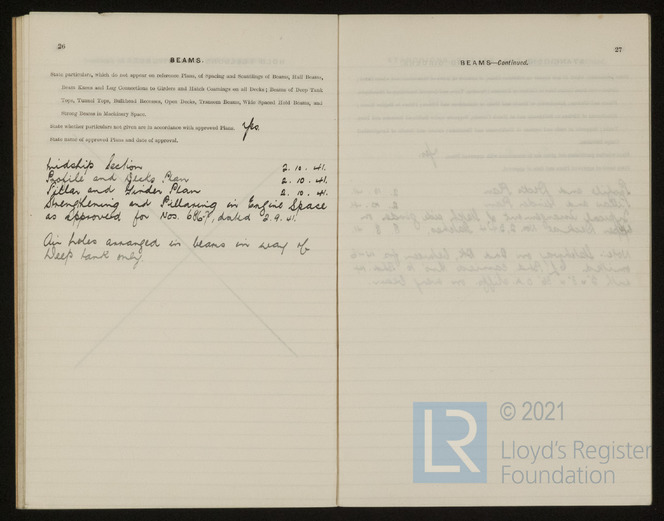 26
BEAMS
State particulars, which do not appear on reference Plans, of Spacing and Scantlings of Beams, Half Beams,
Beam Knees and Lug Connections to Girders and Hatch Coamings on all Decks; Beams of Deep Tank
Tops, Tunnel Tops, Bulkhead Recesses, Open Decks, Transom Beams, Wide Spaced Hold Beams, and
Strong Beams in Machinery Space.
State whether particulars not given are in accordance with approved Plans. Yes.
State name of approved Plans and date of approval.
Midship Section 2.10.41.
Profile and Decks Plan 2.10.41.
Pillar and Girder Plan 2.10.41.
Strengthening and Pillaring in Engine Space
as approved for Nos. dated 2.9.41
Air holes arranged in beams in way of
Deep tank only
27
BEAMS—Continued.
LR © 2021
Lloyd's Register
Foundation